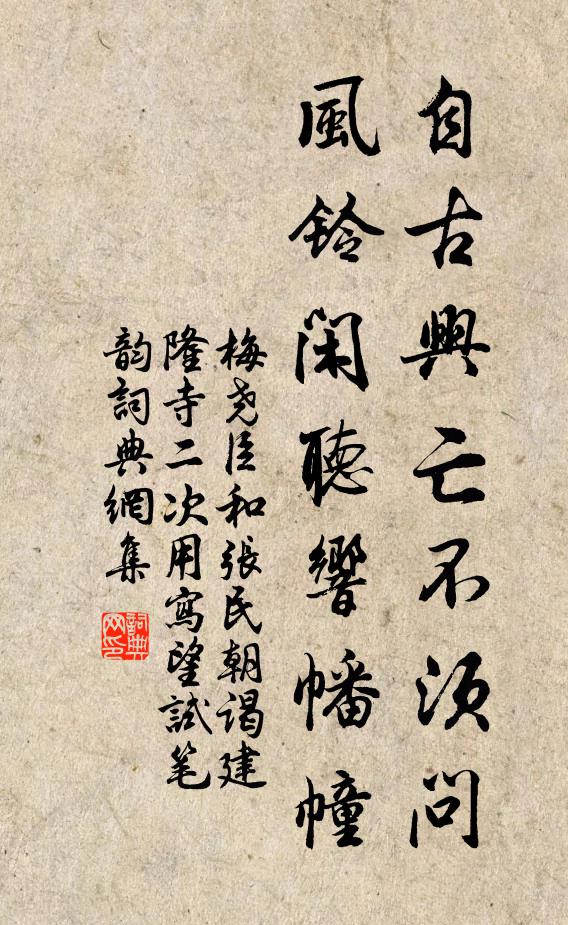 自古興亡不須問
風鈴閑聽響幡幢
梅堯臣和張民朝謁建
隆寺二次用寫望試笔
韵詞典網集
詞典
网印